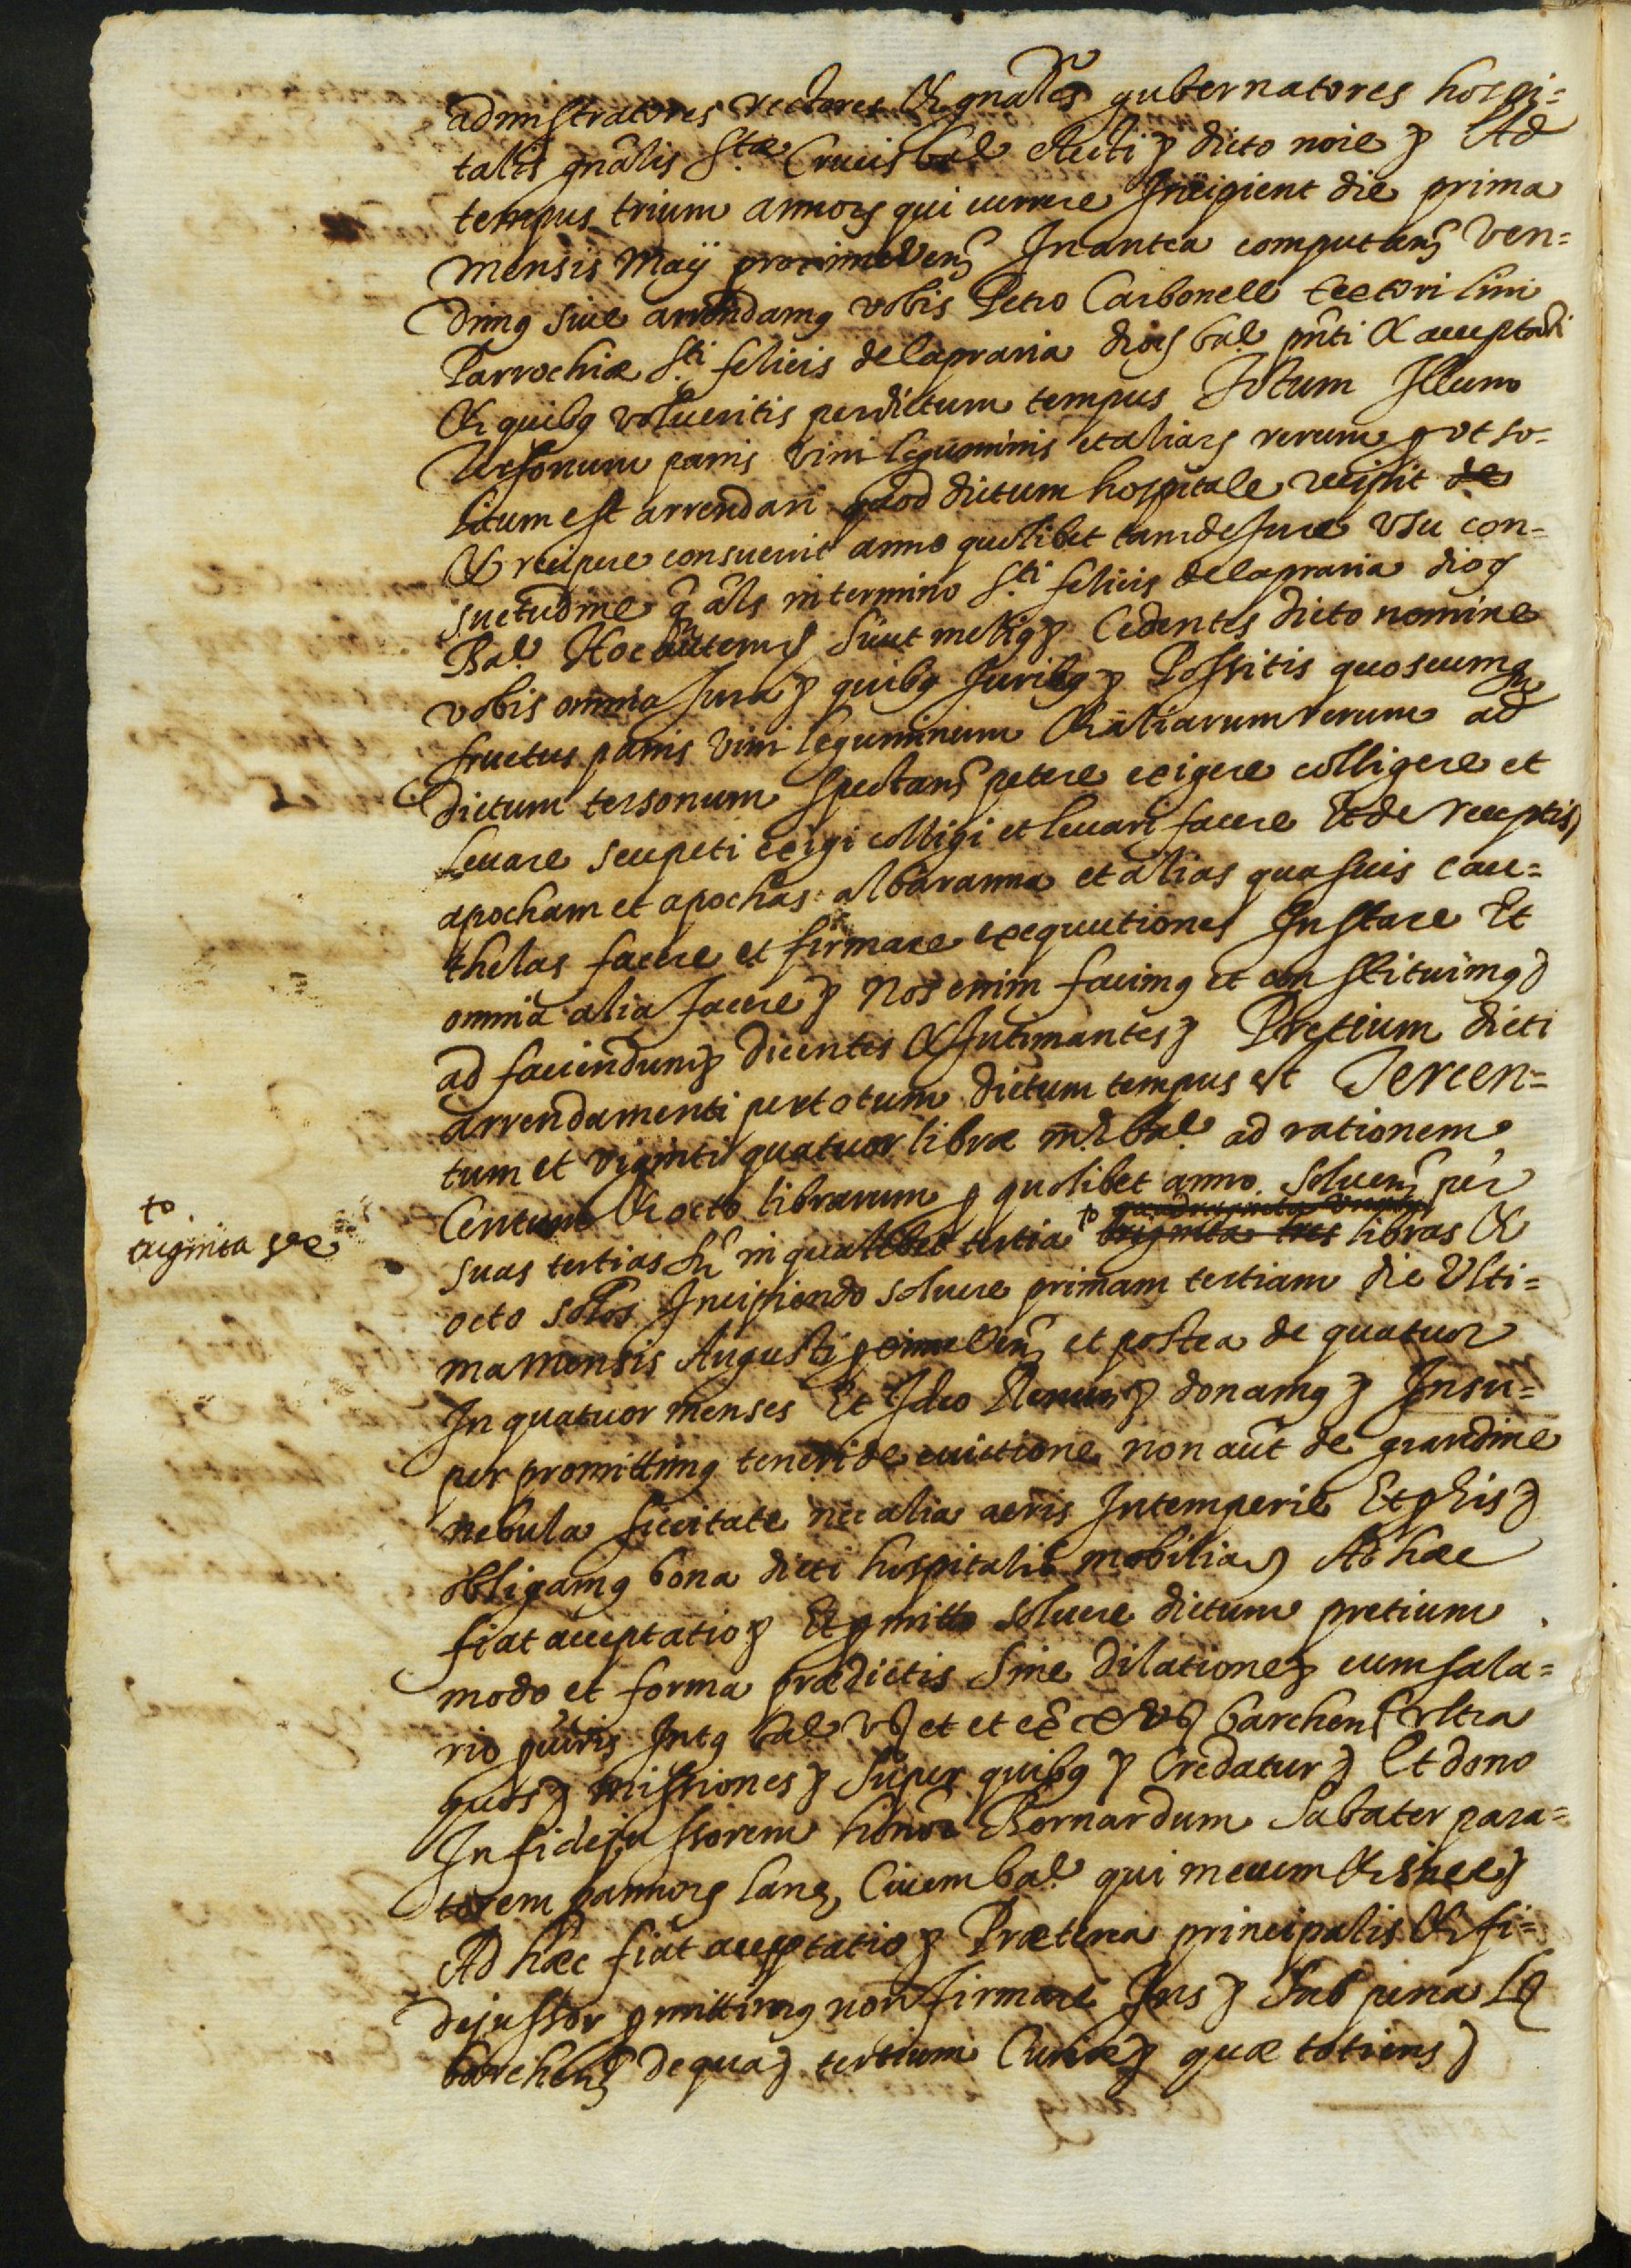 admnistratores rectores & gnāles gubernatores hospi=
talis gnālis S.tæ Crucis bar. electi ꝫ dicto noīe ꝫ Ad
tempus trium annoꝝ qui currere Incipient die prima
mensis Maÿ proxime Venꝫ Inantea computanꝫ Ven=
dimꝰ sive arrendamꝰ vobis Petro Carbonell textori lini
Parrochiæ S.ti felicis de lapraria diocꝫ bar. pn̄ti & acceptanti
& quibꝰ volueritis per dictum tempus Totum Illum
tersonum panis vini leguminis et aliaꝝ rerum ꝓ vt so=
litum est arrendari quod dictum hospitale recipit de
& recipere consuevit anno quolibet tam de Jure Vsu con=
suetudine q̄ āls in termino S.ti felicis de lapraria diocꝫ
Bar. Hoc autem ꝫ sicut meliꝰ ꝫ Cedentes dicto nomine
vobis omnia Jura ꝫ quibꝰ Juribꝰ ꝫ Possitis quoscumqꝫ
fructus panis vini leguminum & aliarum rerum ad
dictum tersonum spectanꝫ petere exigere colligere et
levare seu peti exigi colligi et levari facere Et de receptis ꝫ
apocham et apochas albaranna et alias quasuis cau=
thelas facere et firmare exequutiones Instare Et
omnia alia facere ꝫ Nos enim facimꝰ et constituimꝰ ꝫ
ad faciendum ꝫ dicentes & Intimantes ꝫ Pretium dicti
arrendamenti per totum dictum tempus est Tercen=
tum et viginti quatuor libræ m̄. bar. ad rationem
Centum & octo librarum ꝓ quolibet anno solvenꝫ per
suas tertias in qualibet tertia to triginta tres libras &
to
triginta sex
octo solos Incipiendo solvere primam tertiam die Vlti=
ma mensis Augusti ꝓxime Venꝫ et postea de quatuor
In quatuor menses Et Ideo Renunꝫ donamꝰ ꝫ Insu=
per promittimꝰ teneri de evictione non aūt de grandine
nebula siccitate nec alia aeris Intemperie Et ꝓ his ꝫ
obligamꝰ bona dicti hospitalis mobilia ꝫ Ad hæc
fiat acceptatio ꝫ Et ꝓmitto solvere dictum pretium
modo et forma prædictis sine dilatione ꝫ cum sala=
rio ꝓcuris Intꝰ bar. Vꝫ et ex barchenꝫ Vltra
quos ꝫ missiones ꝫ super quibꝰ ꝫ Credatur ꝫ Et dono
In fidejussorem honor. Bernardum Sabater para=
torem pannoꝝ lanæ Civem bar. qui mecum & sine ꝫ
Ad hæc fiat acceptatio ꝫ Præterea principalis & fi=
dejussor ꝓmittimꝰ non firmare Jus ꝫ Sub pena Lꝫ
barchenꝫ de qua ꝫ tertium Curiæ ꝫ quæ totiens ꝫ